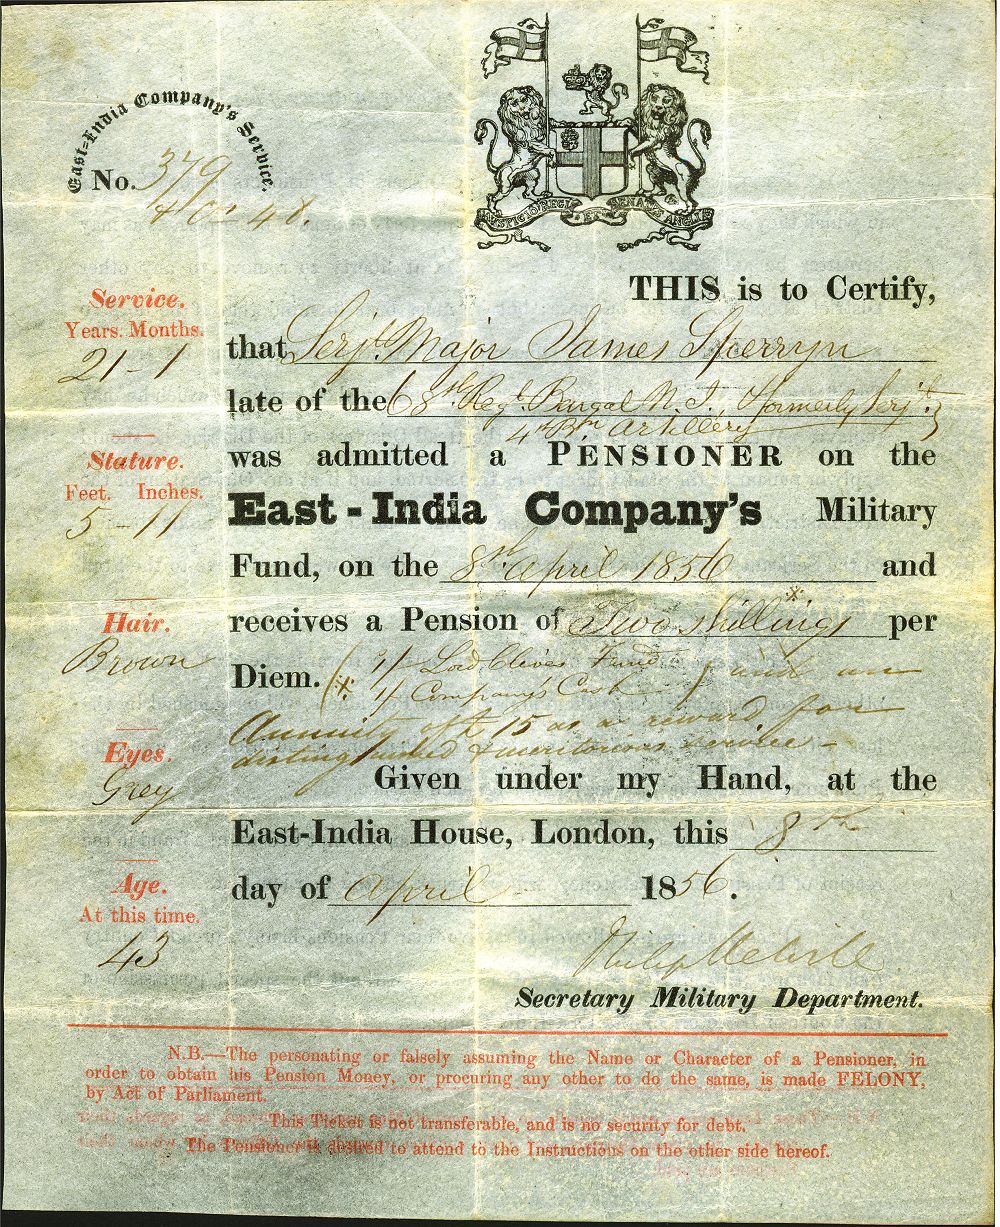 East-India Company's Service.
No. 379
AUSPICIO REGIS ET SENATUS ANGLIÆ
THIS is to Certify,
Service.
Years. Months.
21-1
that Serjt. Major James Sperryn
late of the 68th Regt. Bengal N. I., formerly Serjt.
4th Bn. Artillery
was admitted a PENSIONER on the
Stature.
Feet. Inches.
5-11
East-India Company's Military
Fund, on the 8th April 1856 and
receives a Pension of Two Shillings * per
Hair.
Brown
Diem. (* 1/- Lord Clive's Fund
1/- Company's Cash) and an
Annuity of £ 15 as a reward for
distinguished & meritorious service -
Eyes.
Grey
Given under my Hand, at the
East-India House, London, this 8th
day of April 1856.
Age.
At this time.
43
Philip Melvill
Secretary Military Department.
N.B.—The personating or falsely assuming the Name or Character of a Pensioner, in
order to obtain his Pension Money, or procuring any other to do the same, is made FELONY,
by Act of Parliament.
This Ticket is not transferable, and is no security for debt.
The Pensioner is desired to attend to the Instructions on the other side hereof.